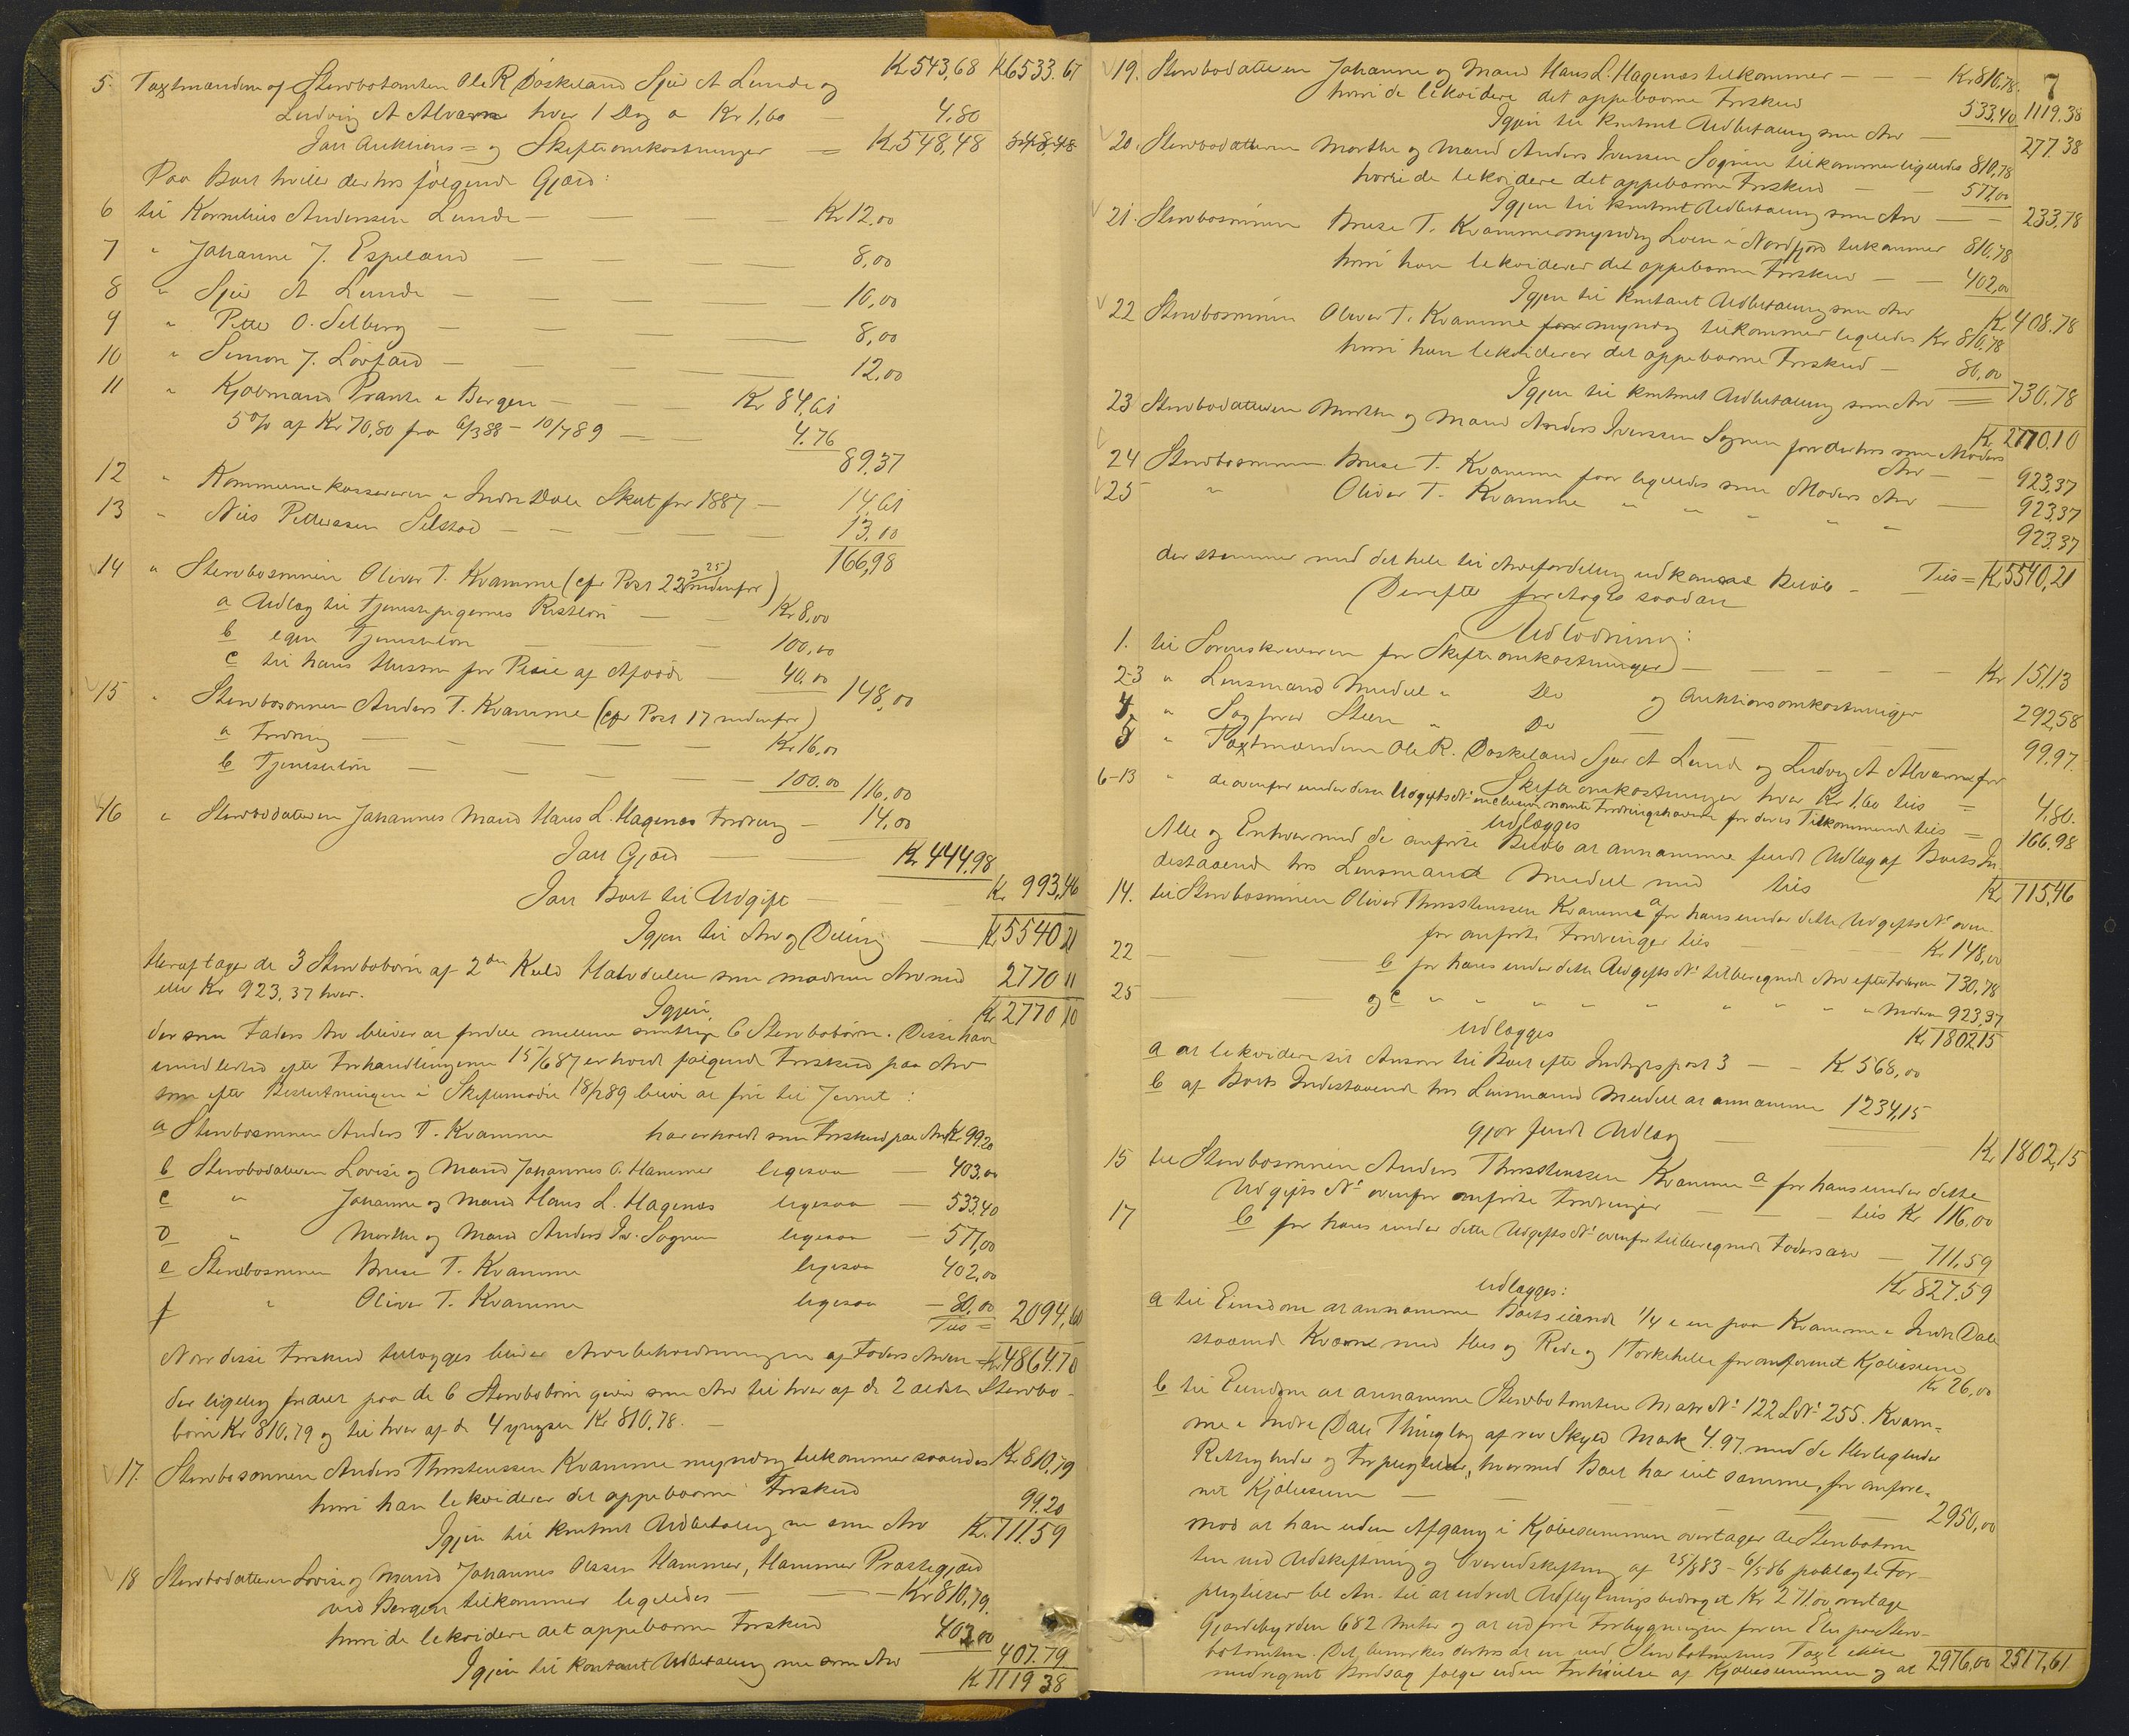 Kr 543,68 Kr 6533.67
5. Taxtmændene af Stervbotomten Ole R Daskeland Sjur A Lunde og
Ludvig A Alværn hver 1 Dag a Kr 1,60 — 4,80
Kr 548,48 548,48
Paa Boet hviler derhos følgende Gjæld:
6 til Kornelius Andersen Lunde — Kr 12,00
7 " Johanne J. Espeland — 8,00
8 " Sjur A Lunde — 10,00
9 " Petter O. Selberg — 8,00
10 " Simon J. — 12,00
11 " Kjøbmand i Bergen — Kr 84,61
5% af Kr 70,80 fra 6/3 88 - 10/7 89 — 4.76
89,37
12 " Kommunekassereren i Indre Dale Skat for 1887 — 14,61
13 " Nils Pettersen Selstad — 13,00
166,98
14 " Stervbosønnen Oliver T. Kvamme (cfr Post 22 25) nedenfor)
a Udlæg til Tjenestepigernes Restløn — Kr 8,00
b egen Tjenesteløn 100,00
c til hans Hustru for Pleie af Afdøde — 40.00 148,00
15 " Stervbosønnen Anders T. Kvamme (cfr Post 17 nedenfor)
a Fordring — Kr 16,00
b Tjenesteløn — 100.00 116,00
16 " Stervbodatteren Johannes Mand Hans L. Hagenæs Fordring — 14,00
Kr 444,98
Kr 993,46
Igjen til Arv og Deling — Kr 5540 21
Heraf tager de 3 Stervbobørn af 2den Kuld Halvdelen som mødrene Arv med 2770 11
eller Kr 923,37 hver.
Igjen Kr 2770 10
der som Faders Arv bliver at fordele mellem samtlige 6 Stervbobørn. Disse har
imidlertid efter Forhandlingerne 15/6 87 erholdt følgende Forskud paa Arv
som efter Beslutningen i Skiftesamling 18/2 89 bliver at føre til Jevnet:
a Stervbosønnen Anders T. Kvamme har erholdt som Forskud paa Arv Kr 99.20
b Stervbodatteren Lovise og Mand Johannes O. Hammer ligesaa 403,00
c " Johanne og Mand Hans L. Hagenæs ligesaa — 533,40
d " Marthe og Mand Anders Iv. Sognen ligesaa — 577,00
e Stervbosønnen Bruse T. Kvamme ligesaa 402,00
f " Oliver T. Kvamme ligesaa — 80,00
Tils = 2094,60
Naar disse Forskud tillægges bliver Arvebeholdningen af Faders Arven = Kr 4864.70
der ligelig fordelt paa de 6 Stervbobørn giver som Arv til hver af de 2 ældste Stervbo-
børn Kr 810,79 og til hver af de 4 yngste Kr 810,78. —
17. Stervbosønnen Anders Thorstensen Kvamme myndig tilkommer saaledes Kr 810,79
hvori han lekviderer det oppebaarne Forskud 99.20
Igjen til kontant Udbetaling som Arv Kr. 711.59
18 Stervbodatteren Lovise og Mand Johannes Olssen Hammer, Hammer Præstegjæld
ved Bergen tilkommer ligeledes — Kr 810,79.
hvori de lekvidere det oppebaarne Forskud 403,00
Igjen til kontant Udbetaling som Arv 407.79
Kr. 1119 38
7
19. Stervbodatteren Johanne og Mand Hans L. Hagenæs tilkommer — Kr 810,78.
hvori de lekvidere det oppebaarne Forskud 533,40 1119.38
Igjen til kontant Udbetaling som Arv — 277.38
20. Stervbodatteren Marthe og Mand Anders Iverssen Sognen tilkommer ligeledes 810,78
hvori de lekvidere det oppebaarne Forskud — 577,00
Igjen til kontant Udbetaling som Arv — 233,78
21. Stervbosønnen Bruse T. Kvamme myndig Loen i Nordfjord tilkommer 810,78
hvori han lekviderer det oppebaarne Forskud — 402,00
Igjen til kontant Udbetaling som Arv Kr 408.78
22 Stervbosønnen Oliver T. Kvamme myndig tilkommer ligeledes Kr 810,78
hvori han lekviderer det oppebaarne Forskud — 80,00
Igjen til kontant Udbetaling som Arv — 730,78
Kr 2770.10
23 Stervbodatteren Marthe og Mand Anders Iverssen Sognen faar derhos som Moders
Arv — 923,37
24 Stervbosønnen Bruse T. Kvamme faar ligeledes som Moders Arv — 923,37
25 " Oliver T. Kvamme " " " " " 923,37
der stemmer med det hele til Arvefordeling udkomne Beløb — Tils = Kr 5540,21
Derefter foretages saadan
Udlodning:
1. til Sorenskriveren for Skifteomkostninger — Kr 151,13
2-3 " Lensmand Meidell " Do og Auktionsomkostninger 292,58
4 " Sagfører Steen " Do — 99,97.
5 " Taxtmændene Ole R. Daskeland Sjur A Lunde og Ludvig A Alværn for
Skifteomkostninger hver Kr 1.60 tils = 4,80.
6-13 " de ovenfor under disse Udgifts No nævnte Fordringshavere for deres Tilkommende tils = 166,98
udlægges
Alle og Enhver med de anførte Beløb at annamme fuldt Udlæg af Boets In-
destaaende hos Lensmand Meidell med tils Kr 715,46
14. til Stervbosønnen Oliver Thorstenssen Kvamme a for hans under dette Udgifts No oven-
for anførte Fordringer tils — Kr 148,00
22 — b for hans under dette Udgifts No tilberegnede Arv efter Faderen 730,78
25 — og c " " " " " " " " Moderen 923,37
udlægges Kr 1802,15
a at lekvidere sit Ansvar til Boet efter Indtægtspost 3 — Kr 568,00
b af Boets Indestaaende hos Lensmand Meidell at annamme 1234,15
gjør fuldt Udlæg — Kr 1802,15
15 til Stervbosønnen Anders Thorstenssen Kvamme a for hans under dette
Udgifts No ovenfor anførte Fordringer — tils Kr 116,00
17 b for hans under dette Udgifts No ovenfor tilberegnede Fadersarv — 711,59
udlægges: Kr 827,59
a til Eiendom at annamme Boets eiende 1/4 i en paa Kvamme i Indre Dale
staaende Kværn med Hus og Rede og 1 Tørkehelle for anførende Kjøbesum
Kr 26,00
b til Eiendom at annamme Stervbotomten Matr No 122 L No 255. Kvam-
me i Indre Dale Thinglag af rev Skyld Mark 4.97 med de Herligheder
Rettigheder og Forpligtelser, hvormed Boet har eiet samme, for anføre-
nde Kjøbesum — 2950,00
mod at han uden Afgang i Kjøbesummen overtager de Stervbotom-
ten ved Udskiftning og Overudskiftning af 25/8 83 - 6/5 86 paalagte For-
pligtelser bl. An. til at udrede Udflytningsbidraget Kr 271.00, overtage
Gjerdebyrden 682 Meter og at udføre Forbygningen for en Elv paa Sterv-
botomten. Det bemærkes derhos at en ved Stervbotomtens Taxt ikke
medregnet følger uden Forhøielse af Kjøbesummen og at 2976,00 2517,61